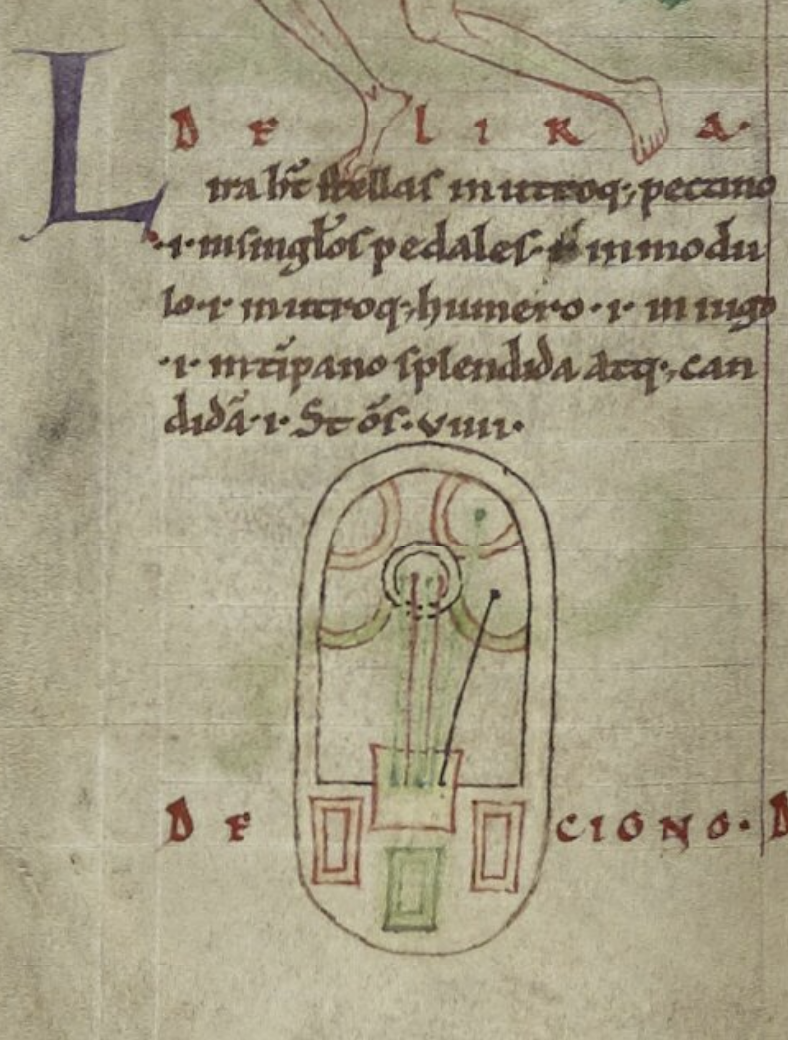 DE LIRA.
Lira hr̄t stellas in utroq; pectino
·i· in singl̄os pedales · i · in modu
lo · i · in utroq; humero · i · in iugo
·i· in tīpano splendida atq; can
didā · i · St ōs · viiii ·
DE CIGNO. D